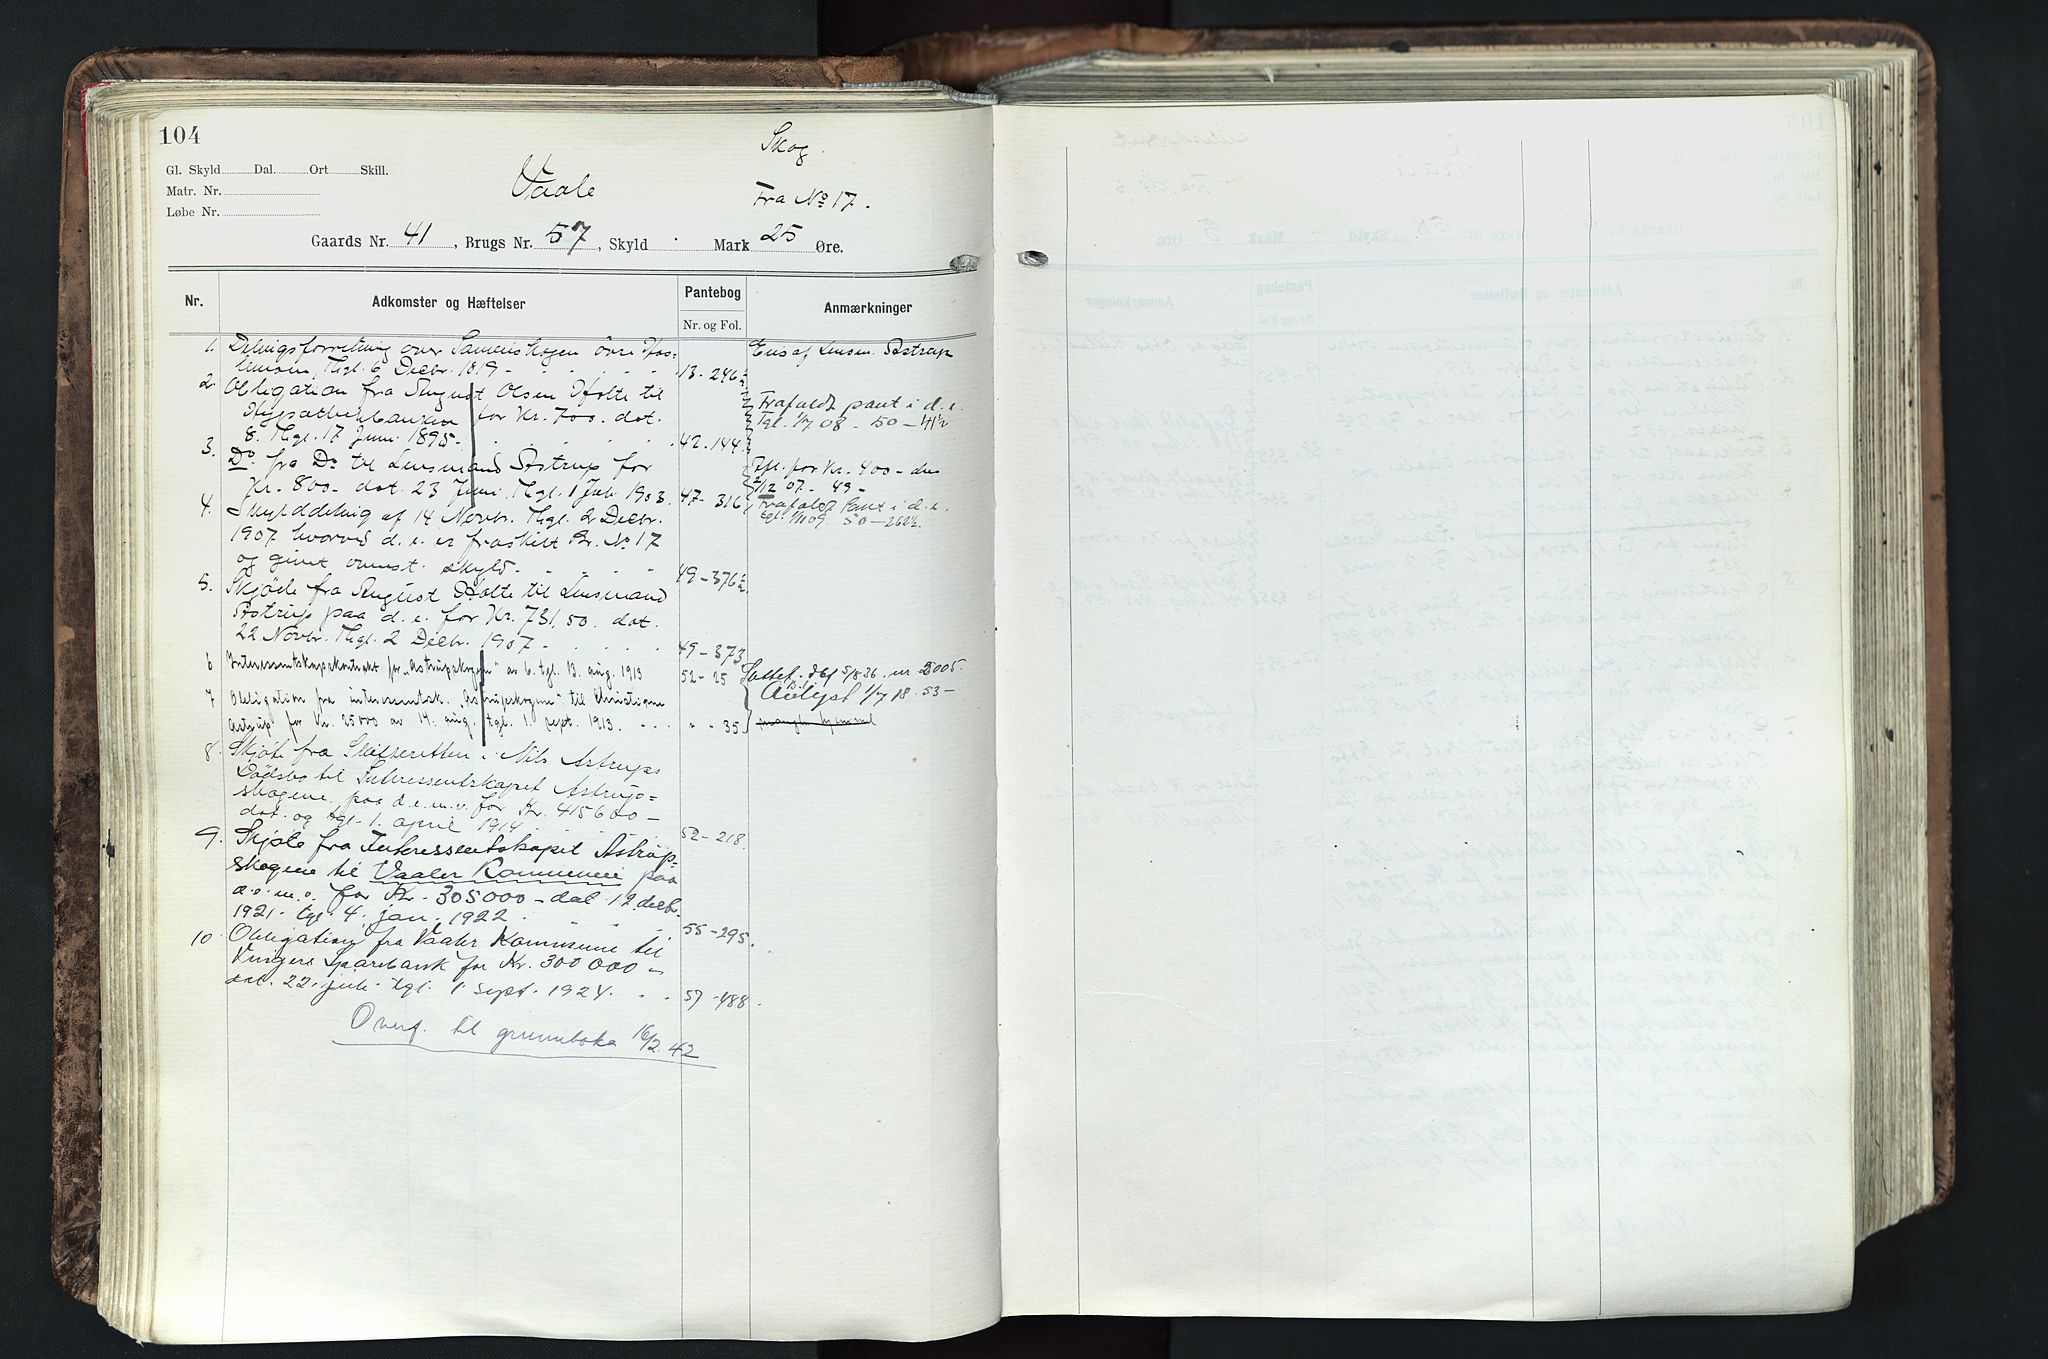 104
Skog.
Gl. Skyld Dal. Ort Skill.
Matr. Nr.
Vaale
Fra No 17.
Løbe Nr.
Gaards Nr. 41, Brugs Nr. 57, Skyld . Mark 25 Øre.
Nr. Adkomster og Hæftelser Pantebog Anmærkninger
Nr. og Fol.
1. Delingsforretning over Sameiskogen övre
Thgl. 6 Decbr. 1819 - 13-246½
Eies af Lensm. Astrup
2. Obligation fra August Olsen Holte til
Hypothekbanken for Kr. 700. dat.
8. Thgl. 17 Juni 1895. 42-144
Frafaldt pant i d. e.
Tgl. 1/7 08. 50-41½
3. Do. fra Do. til Lensmand Astrup for
Kr. 800- dat. 23 Juni. Thgl. 1 Juli 1903. 47-316
for Kr. 400-
07. 49-
Frafaldt Pant i d. e.
50-262½.
4. Skylddeling af 14 Novbr. Thgl. 2 Decbr.
1907 hvorved d. e. er fraskilt Br. No 17
og givet ovennst. skyld. 49-376½
5. Skjöde fra August Holte til Lensmand
Astrup paa d. e. for Kr. 731,50. dat.
22 Novbr. Thgl. 2 Decbr. 1907. 49-373
6 Interessentskapskontrakt for "Astrupskogen" av 6. tgl. 13. aug. 1913 52-25
Slettet. dbf 5/8 36. nr 2005.
7 Obligation fra interessentsk. "Astrupskogene" til Christiane
Astrup for Kr. 25000 av 14. aug. tgl. 1. sept. 1913. " - 35
Avlyst 1/7 18 53-
8. Skjøte fra Skifteretten i Nils Astrups
Dødsbo til Interessentskapet Astrup=
skogene paa d. e. m. v. for Kr. 415600-
dat. og tgl. 1. april 1914. 52-218.
9. Skjøte fra Interessentskapet Astrup=
skogene til Vaaler Kommune paa
d. e. m. v. for Kr. 305000- dat. 12 decbr.
1921. tgl. 4. jan. 1922. 55-295.
10. Obligation fra Vaaler Kommune til
Vingers Sparebank for Kr. 300 000-
dat. 22. juli. tgl. 1 sept. 1924. 57-488.
Overf. til grunnboka 16/2.42